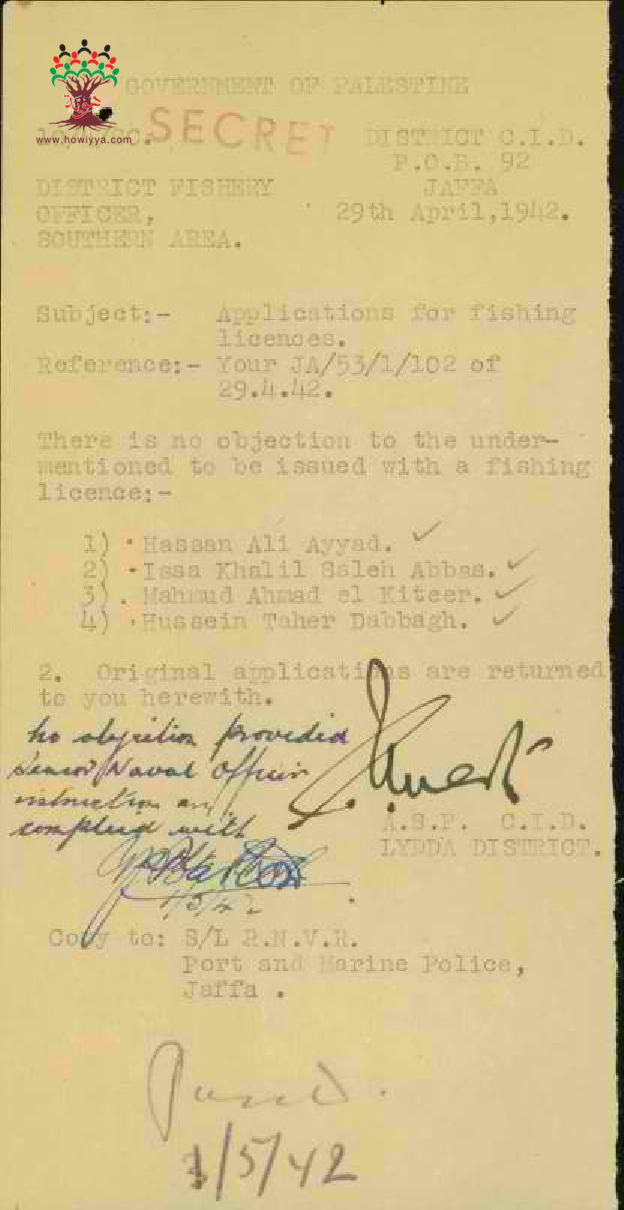 www.howiyya.com
GOVERNMENT OF PALESTINE
SECRET
DISTRICT C.I.D.
P.O.B. 92
JAFFA
29th April,1942.
DISTRICT FISHERY
OFFICER,
SOUTHERN AREA.
Subject:- Applications for fishing
licences.
Reference:- Your JA/53/1/102 of
29.4.42.
There is no objection to the under-
mentioned to be issued with a fishing
licence:-
1) Hassan Ali Ayyad. ✓
2) Issa Khalil Saleh Abbas. ✓
3) Mahmud Ahmad el Kiteer. ✓
4) Hussein Taher Dabbagh. ✓
2. Original applications are returned
to you herewith.
no objection provided
Senior Naval Officer
instruction are
complied with
A.S.P. C.I.D.
LYDDA DISTRICT.
1/5/42
Copy to: S/L R.N.V.R.
Port and Marine Police,
Jaffa .
/5/42